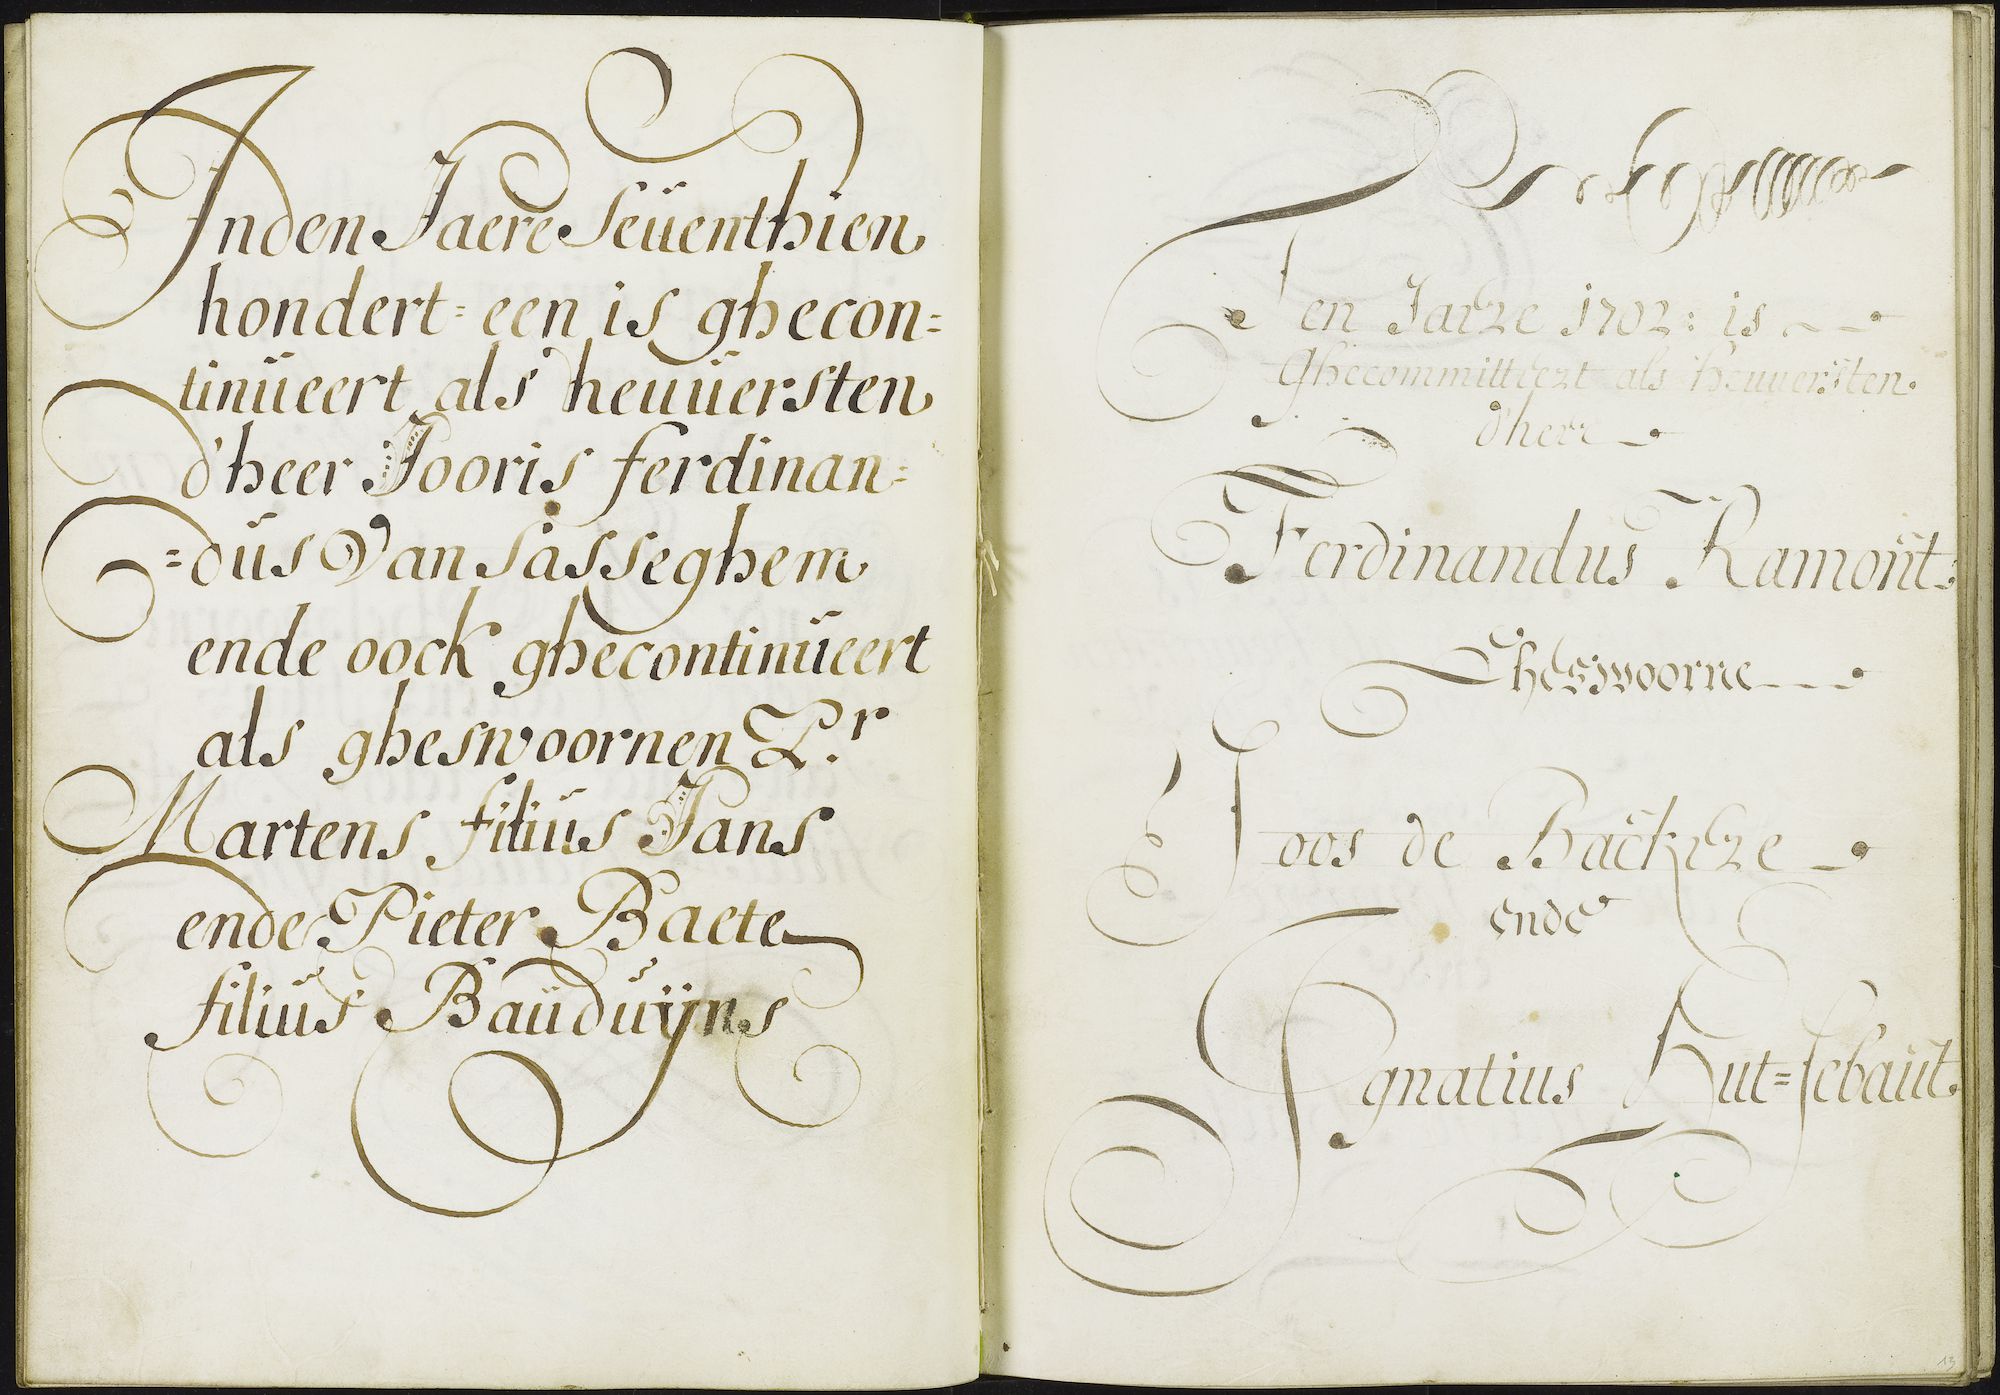 Inden Jaere Seüenthien
hondert= een is ghecon=
tinüeert als heuüersten
d'heer Jooris ferdinan=
=düs Van Sasseghem
ende oock ghecontinüeert
als gheswoornen P.r
Martens filiüs Jans
ende Pieter Baete
filiüs Baüduÿns
Ten Jaere 1702: is
Ghecommitteert als heuuersten.
d'heer
Ferdinandus Ramoüt.
Gheswoorne
Joos de Backere
ende
Ignatius Hut=sebaüt.
13